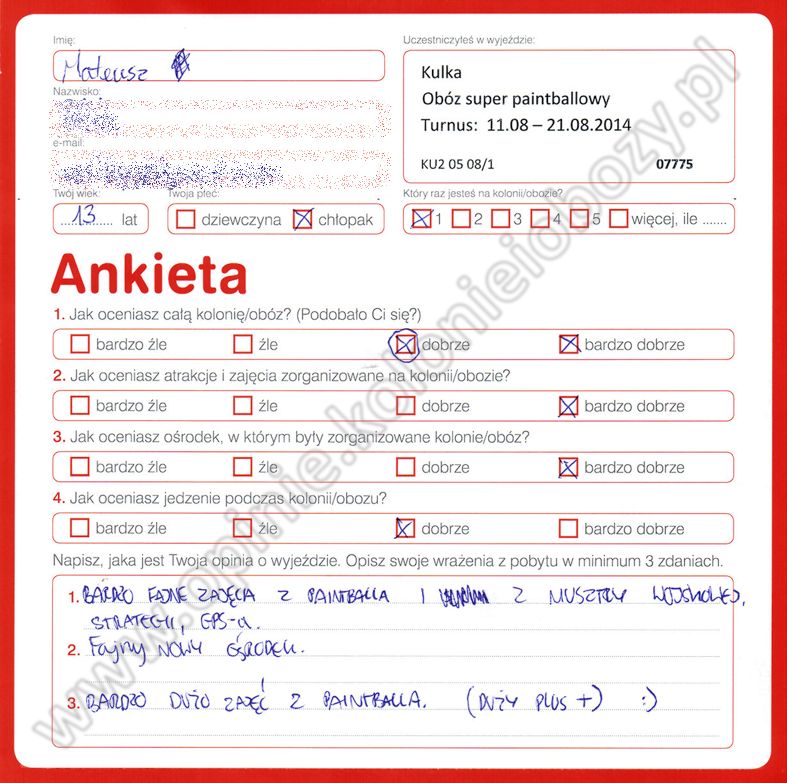 Imię:
Uczestniczyłeś w wyjeździe:
Mateusz
Kulka
Obóz super paintballowy
Turnus: 11.08 – 21.08.2014
KU2 05 08/1
07775
Nazwisko:
e-mail:
Twój wiek:
Twoja płeć:
Który raz jesteś na kolonii/obozie?
13 lat
dziewczyna chłopak
1 2 3 4 5 więcej, ile .......
Ankieta
1. Jak oceniasz całą kolonię/obóz? (Podobało Ci się?)
bardzo źle źle dobrze bardzo dobrze
2. Jak oceniasz atrakcje i zajęcia zorganizowane na kolonii/obozie?
bardzo źle źle dobrze bardzo dobrze
3. Jak oceniasz ośrodek, w którym były zorganizowane kolonie/obóz?
bardzo źle źle dobrze bardzo dobrze
4. Jak oceniasz jedzenie podczas kolonii/obozu?
bardzo źle źle dobrze bardzo dobrze
Napisz, jaka jest Twoja opinia o wyjeździe. Opisz swoje wrażenia z pobytu w minimum 3 zdaniach.
1. BARDZO FAJNE ZAJĘCIA Z PAINTBALLA I Z MUSZTRY WOJSKOWEJ,
STRATEGII, GPS-u.
2. Fajny NOWY OŚRODEK.
3. BARDZO DUŻO ZAJĘĆ Z PAINTBALLA. (DUŻY PLUS +) :)
www.opinie.kolonieiobozy.pl